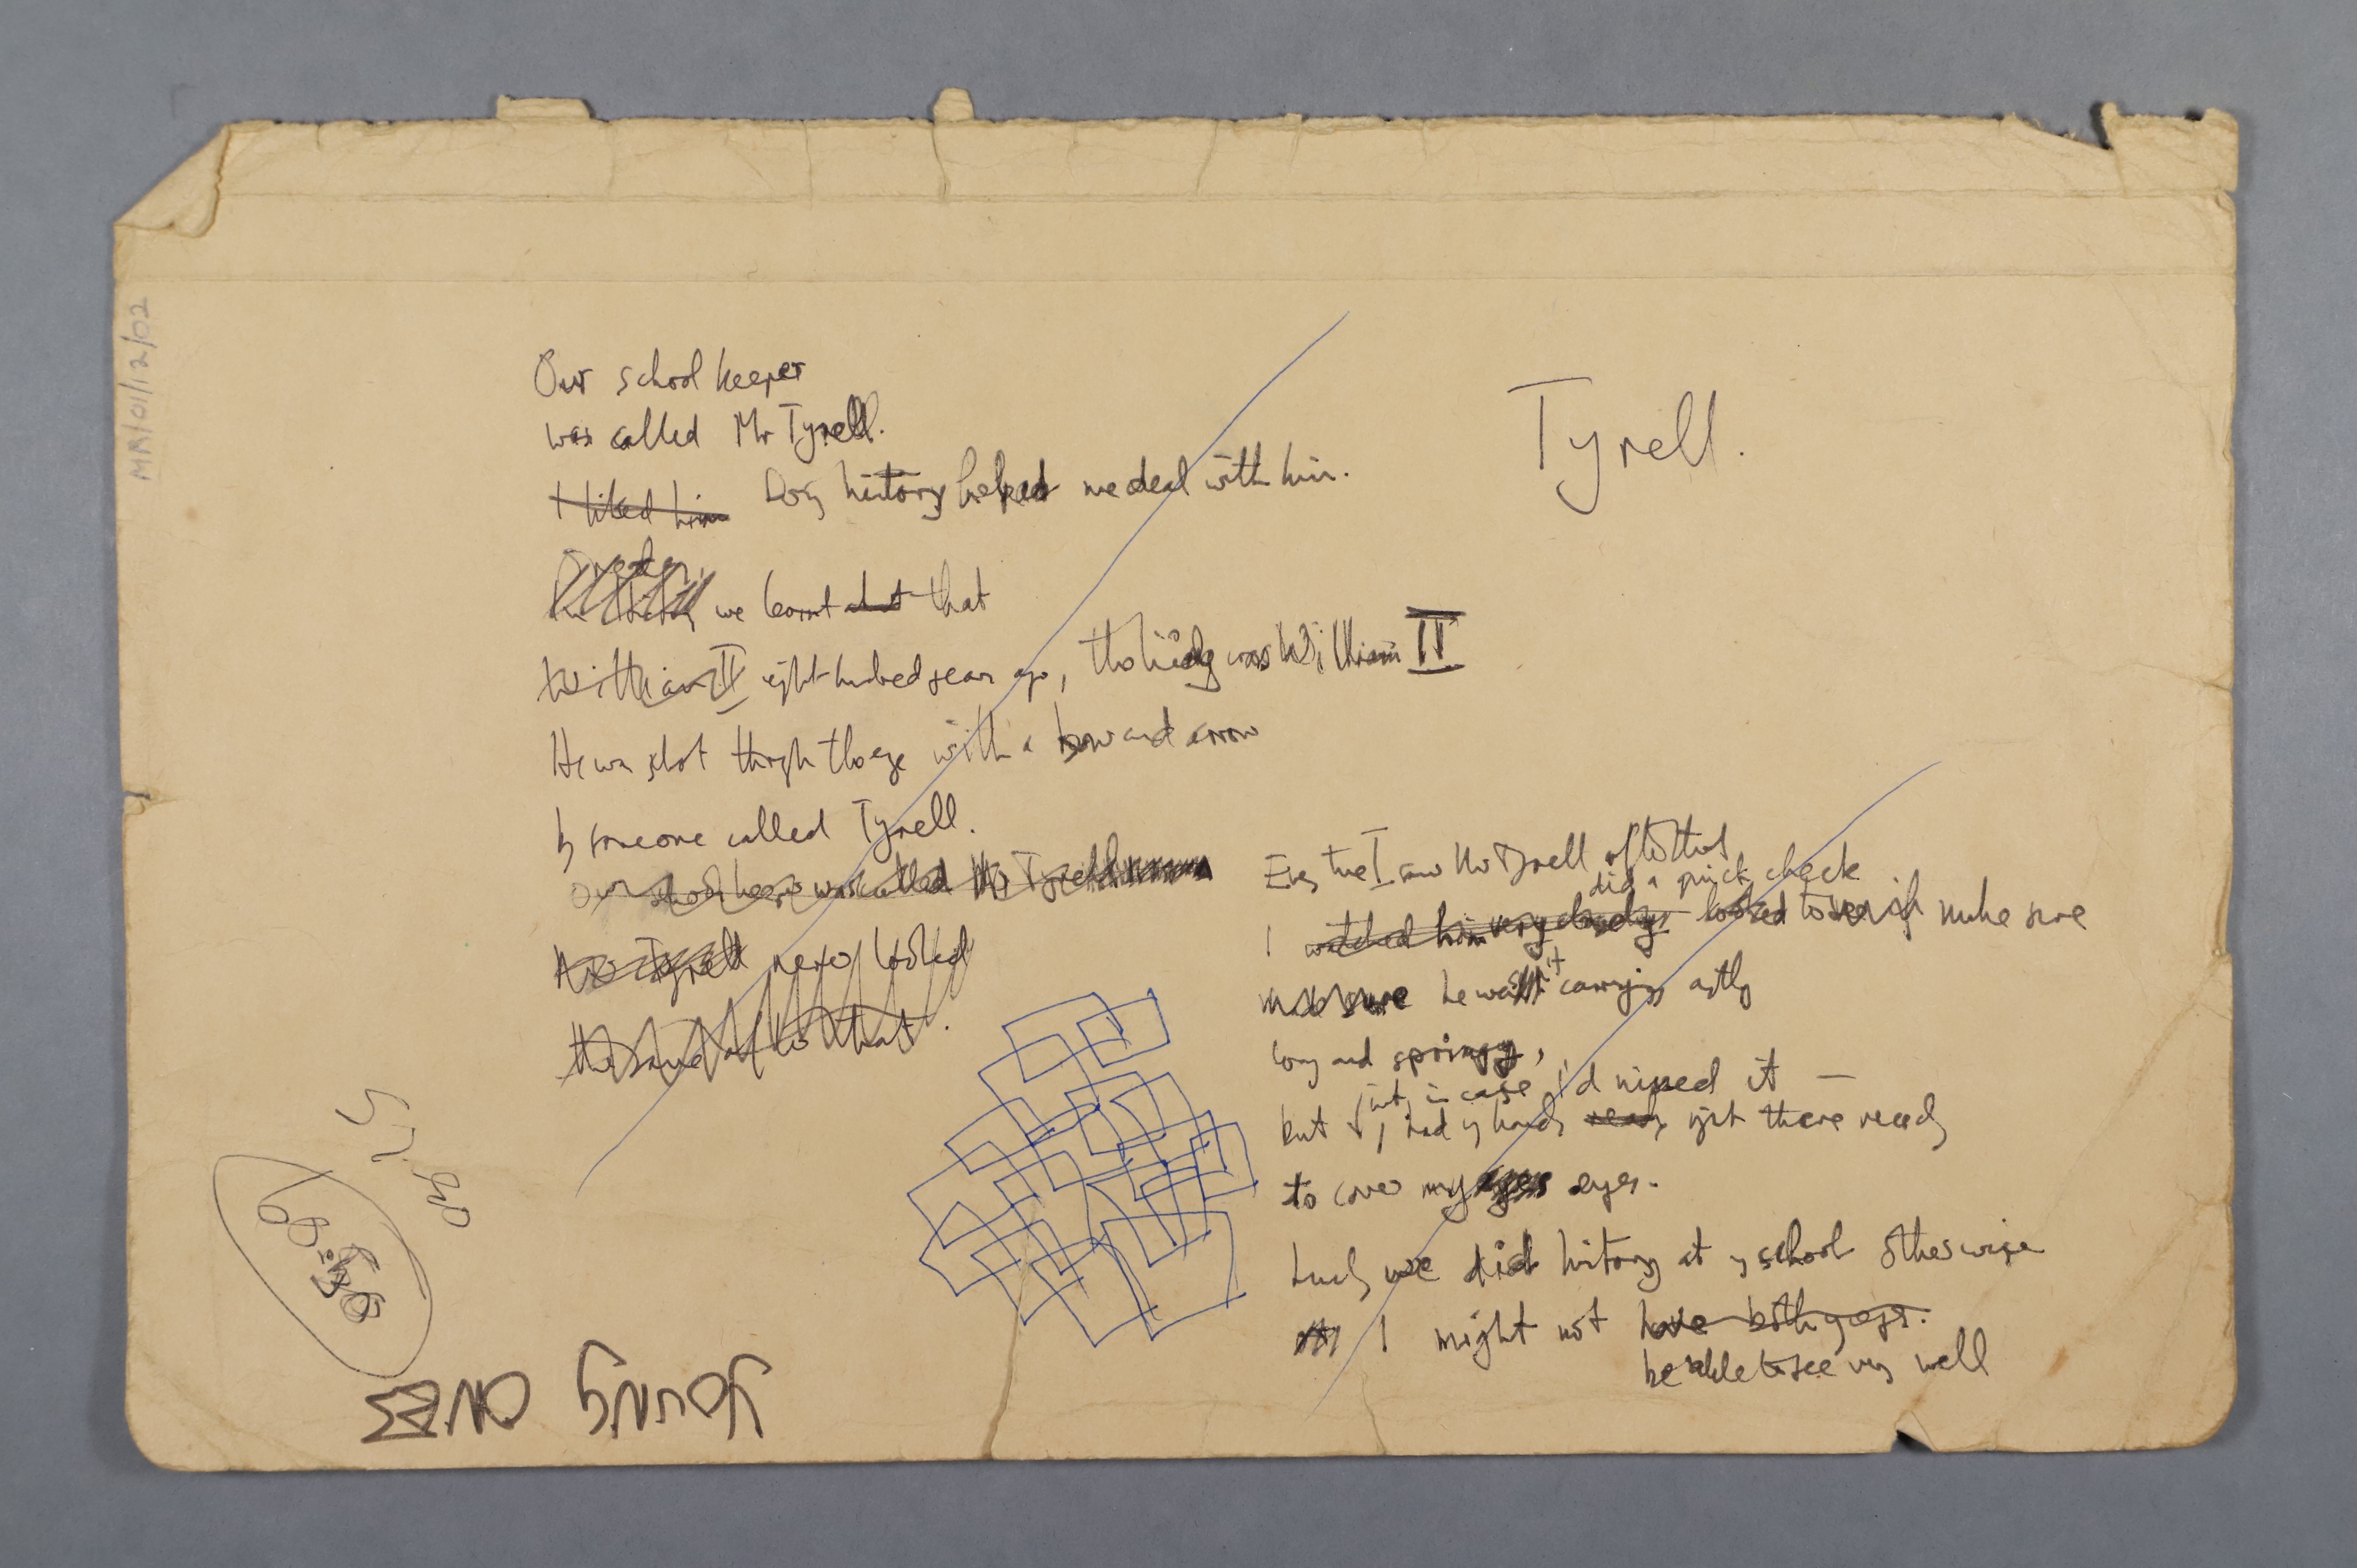 MR/01/12/02
Tyrell.
Our school keeper
was called Mr Tyrell.
I liked him Doing history helped me deal with him.
we learnt that
William II eight hundred years ago, the king was William II
He was shot through the eye with a bow and arrow
by someone called Tyrell.
Our school keeper was called Mr Tyrell
Mr Tyrell never looked
the same after that.
Every time I saw Mr Tyrell after that
did a quick check
I watched him very closely looked to see if make sure
make sure he wasn't carrying anything
long and springy,
just in case I'd nipped it —
but I had my hands ready right there ready
to cover my eyes eyes.
Lucky we did history at my school otherwise
I might not have both eyes.
be able to see very well
Young ONE